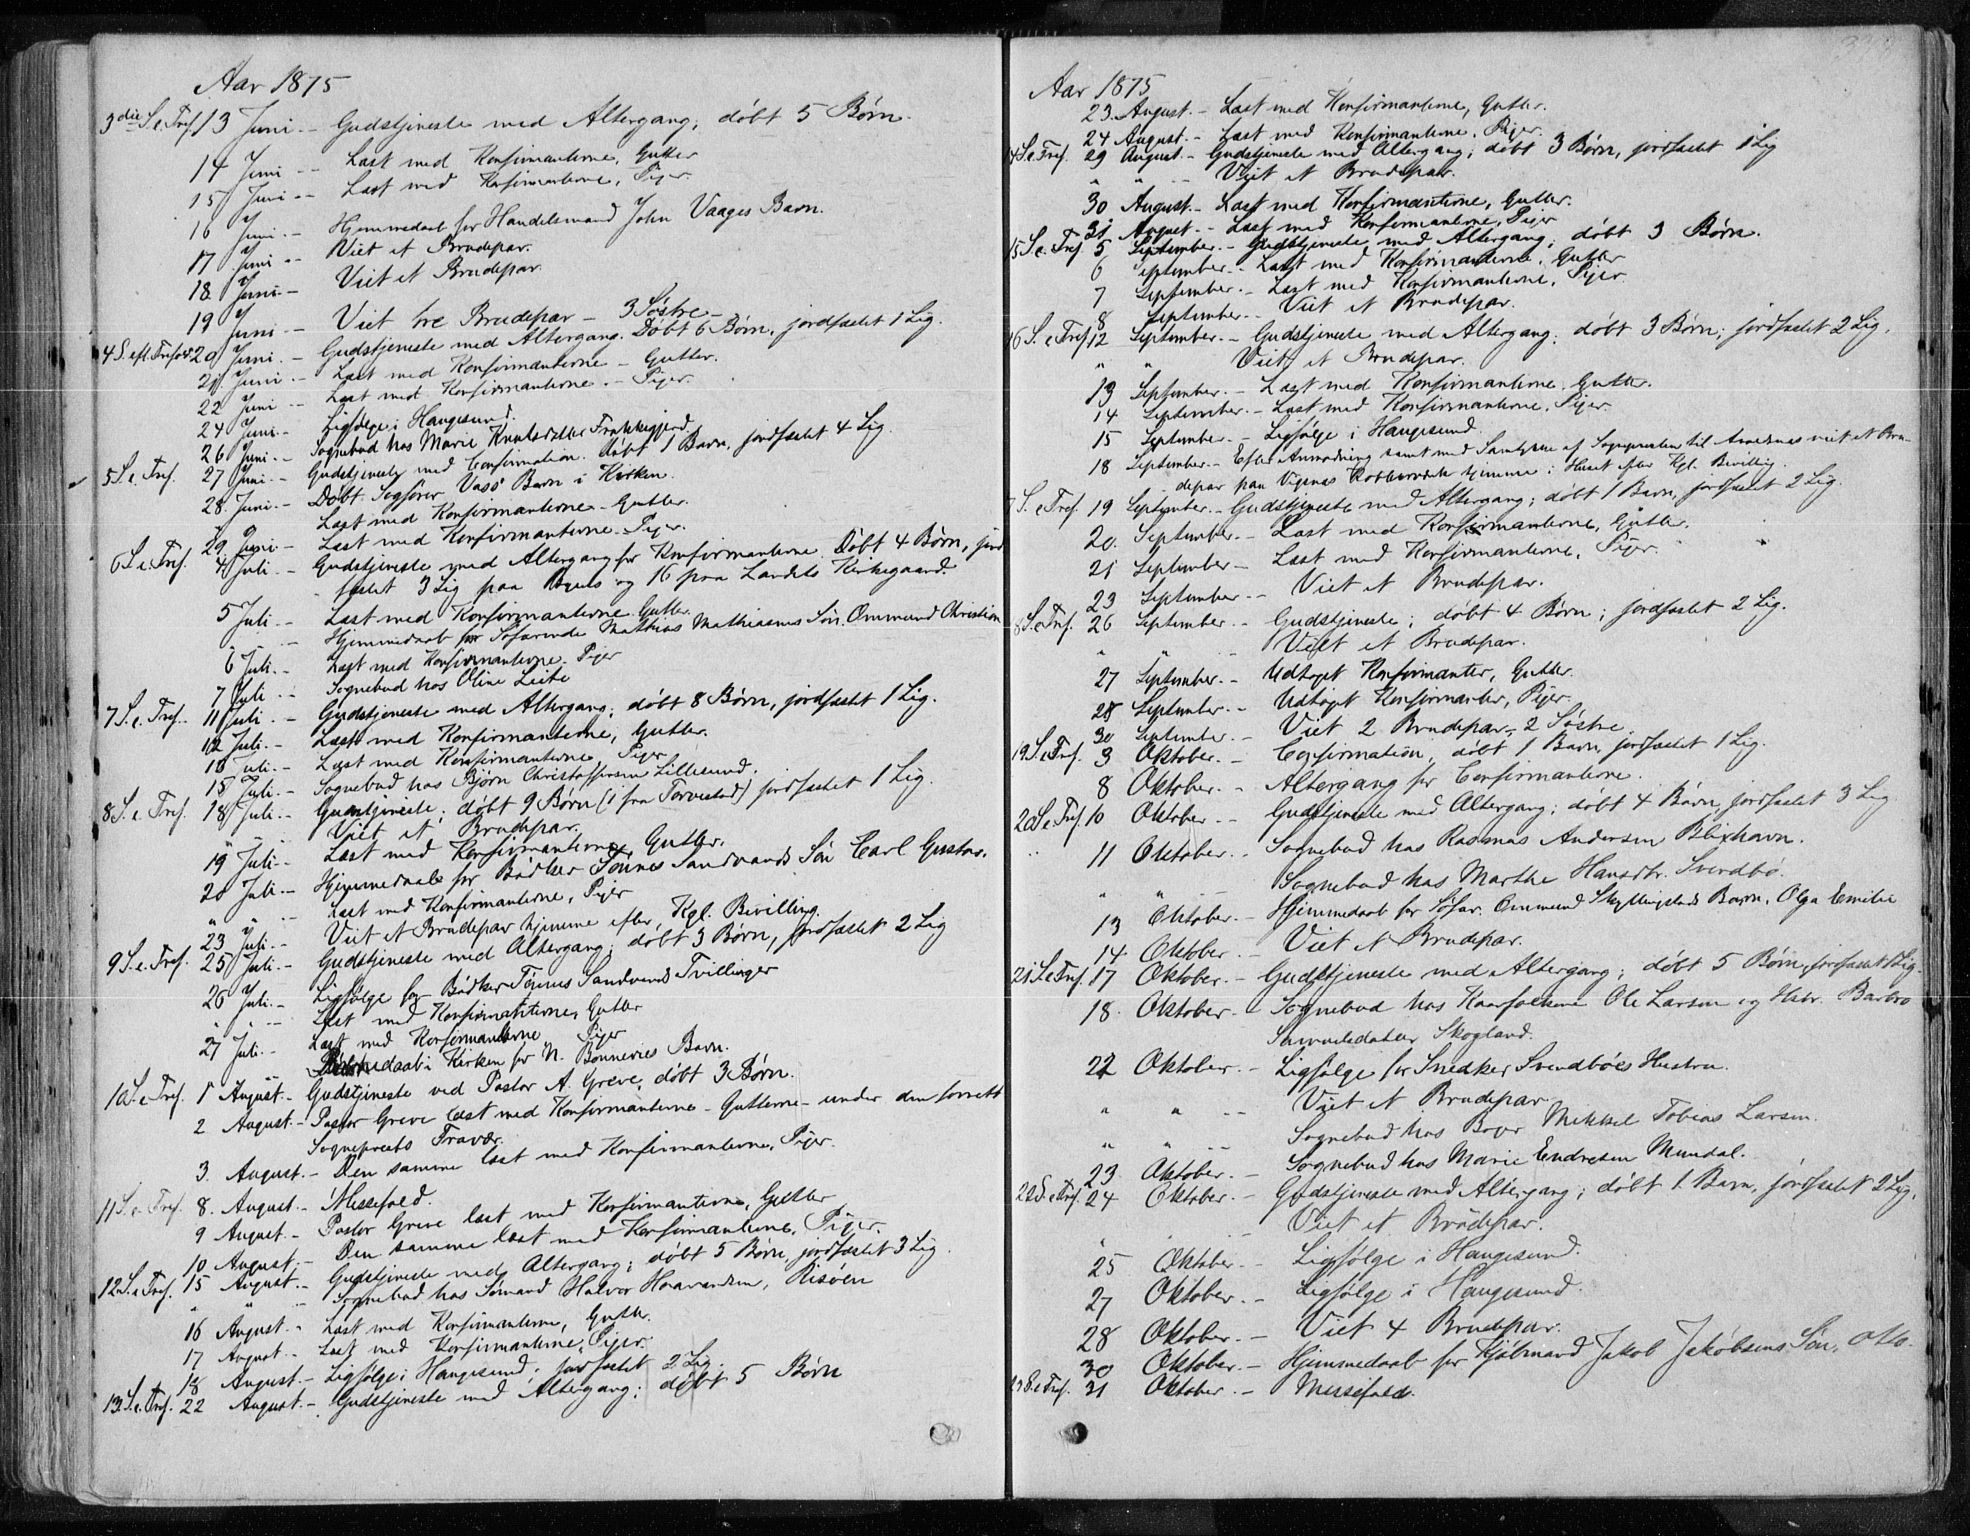 Aar 1875
3die S. e. Tref. 13 Juni - Gudstjeneste med Altergang; døbt 5 Børn.
14 Juni - Læst med Konfirmanterne, Gutter
15 Juni - Læst med Konfirmanterne, Piger.
16 Juni - Hjemmedaab for Handelsmand John Vaages Barn.
17 Juni - Viet et Brudepar.
18 Juni - Viet et Brudepar
19 Juni - Viet tre Brudepar - 3 Søstre -
4 S. eft. Trefold. 20 Juni. - Gudstjeneste med Altergang. Døbt 6 Børn, jordfæstet 1 Lig.
21 Juni - Læst med Konfirmanterne - Gutter.
22 Juni - Læst med Konfirmanterne. - Piger.
24 Juni - Ligfølge i Haugesund.
26 Juni. - Sognebud hos Marie Knutsdatter
5 S. e. Tref. 27 Juni - Gudstjeneste med Confirmation. Døbt 1 Barn, jordfæstet 4 Lig.
28. Juni - Døbt Sagfører Vass' Barn i Kirken.
Læst med Konfirmanterne - Gutter.
29 Juni - Læst med Konfirmanterne - Piger.
6 S. e. Tref. 4 Juli. - Gudstjeneste med Altergang for Konfirmanterne. Døbt 4 Børn, jord
fæstet 3 Lig paa Byens og 16 paa Landets Kirkegaard.
5 Juli - Læst med Konfirmanterne. Gutter.
" " - Hjemmedaab for Søfarende Mathias Mathiasens Søn. Ommund Christian
6 Juli - Læst med Konfirmanterne. Piger
7 Juli - Sognebud hos Oline Leite
7 S. e. Tref. 11 Juli. - Gudstjeneste med Altergang; døbt 8 Børn, jordfæstet 1 Lig.
12 Juli. - Læst med Konfirmanterne, Gutter.
13 Juli. - Læst med Konfirmanterne, Piger
15 Juli. - Sognebud hos Bjørn Christoffersen Lillesund.
8 S. e. Tref. 18 Juli. - Gudstjeneste; døbt 9 Børn (1 fra Torvestad) jordfæstet 1 Lig.
" " Viet et Brudepar.
19 Juli. - Læst med Konfirmanterne, Gutter.
20 Juli. - Hjemmedaab for Bødker Tønnes Sandvands Søn Carl Gustav.
" " Læst med Konfirmanterne, Piger
23 Juli. - Viet et Brudepar hjemme efter Kgl. Bevilling.
9 S. e. Tref. 25 Juli. - Gudstjeneste med Altergang; døbt 3 Børn, jordfæstet 2 Lig
26 Juli. - Ligfølge for Bødker Tønnes Sandvands Tvillinger
" " Læst med Konfirmanterne, Gutter
27 Juli. - Læst med Konfirmanterne Piger
daab i Kirken for N. Bonnevies Barn.
10 S. e. Tref. 1 August. - Gudstjeneste ved Pastor A. Greve, døbt 3 Børn.
2 August. - Pastor Greve læst med Konfirmanterne - Gutterne - under den
Sognepræsts Fravær.
3. August. - Den samme læst med Konfirmanterne, Piger.
11 S. e. Tref. 8. August. - Messefald.
9 August. - Pastor Greve læst med Konfirmanterne, Gutter
10 August. - Den samme læst med Konfirmanterne, Piger.
12 S. e. Tref. 15 August. - Gudstjeneste med Altergang; døbt 5 Børn, jordfæstet 3 Lig.
" " Sognebud hos Sømand Halvor Risøen
16 August. - Læst med Konfirmanterne, Gutter.
17 August. - Læst med Konfirmanterne, Piger.
18 August. - Ligfølge i Haugesund; jordfæstet 2 Lig.
13. S. e. Tref. 22 August. - Gudstjeneste med Altergang; døbt 5 Børn
Aar 1875
23. August. - Læst med Konfirmanterne, Gutter.
24 August. - Læst med Konfirmanterne, Piger.
14 S. e. Tref. 29 August. - Gudstjeneste med Altergang; døbt 3 Børn, jordfæstet 1 Lig
" " Viet et Brudepar.
30 August. - Læst med Konfirmanterne, Gutter.
31 August. - Læst med Konfirmanterne, Piger
15 S. e. Tref. 5 September. - Gudstjeneste med Altergang; døbt 3 Børn.
6 September. - Læst med Konfirmanterne, Gutter
7 September. - Læst med Konfirmanterne, Piger
8 September. - Viet et Brudepar.
16 S. e. Tref. 12 September. - Gudstjeneste med Altergang; døbt 3 Børn; jordfæstet 2 Lig.
" " Viet et Brudepar.
13 September. - Læst med Konfirmanterne, Gutter.
14 September. - Læst med Konfirmanterne, Piger.
15 September. - Ligfølge i Haugesund.
18 September. - Efter Anmodning samt med Samtykke af Sognepresten til Avaldsnes viet et Bru-
depar paa Vigsnes Kobberværk hjemme i Huset efter Kgl. Bevillig.
7 S. e. Tref. 19 September. - Gudstjeneste med Altergang; døbt 1 Barn, jordfæstet 2 Lig.
20. September. - Læst med Konfirmanterne, Gutter.
21 September - Læst med Konfirmanterne, Piger.
23 September - Viet et Brudepar.
8 S. e. Tref. 26 September. - Gudstjeneste; døbt 4 Børn; jordfæstet 2 Lig.
" " Viet et Brudepar.
27 September. - Udtaget Konfirmanter, Gutter.
28 September. - Udtaget Konfirmanter, Piger
30 September. - Viet 2 Brudepar, 2 Søstre.
19. S. e. Tref. 3 Oktober. - Confirmation, døbt 1 Barn, jordfæstet 1 Lig.
8 Oktober. - Altergang for Confirmanterne.
20 S. e. Tref. 10 Oktober. - Gudstjeneste med Altergang; døbt 4 Børn, jordfæstet 3 Lig
11 Oktober. - Sognebud hos Rasmus Andersen Bleihavn.
" " Sognebud hos Marthe Hansdtr. Svendbø.
13 Oktober. - Hjemmedaab for Søfar. Ommund Skyllingstads Barn, Olga Emilie
14 Oktober. - Viet et Brudepar.
21 S. e. Tref. 17 Oktober. - Gudstjeneste med Altergang; døbt 5 Børn, jordfæstet 1 Lig.
18. Oktober. - Sognebud hos Kaarfolkene Ole Larsen og Hstr. Barbro
Samuelsdatter Skogland.
22 Oktober. - Ligfølge for Snedker Svendbøes Hustru.
" " Viet et Brudepar
" " Sognebud hos Mikkel Tobias Larsen.
23. Oktober. - Sognebud hos Marie Endresen Mundal.
22 S. e. Tref. 24 Oktober. - Gudstjeneste med Altergang; døbt 1 Barn, jordfæstet 2 Lig.
" " Viet et Brudepar.
25 Oktober. - Ligfølge i Haugesund.
27 Oktober. - Ligfølge i Haugesund.
28 Oktober. - Viet 4 Brudepar.
30 Oktober. - Hjemmedaab for Kjøbmand Jakob Jakobsens Søn, Otto.
23 S. e. Tref. 31 Oktober. - Messefald.